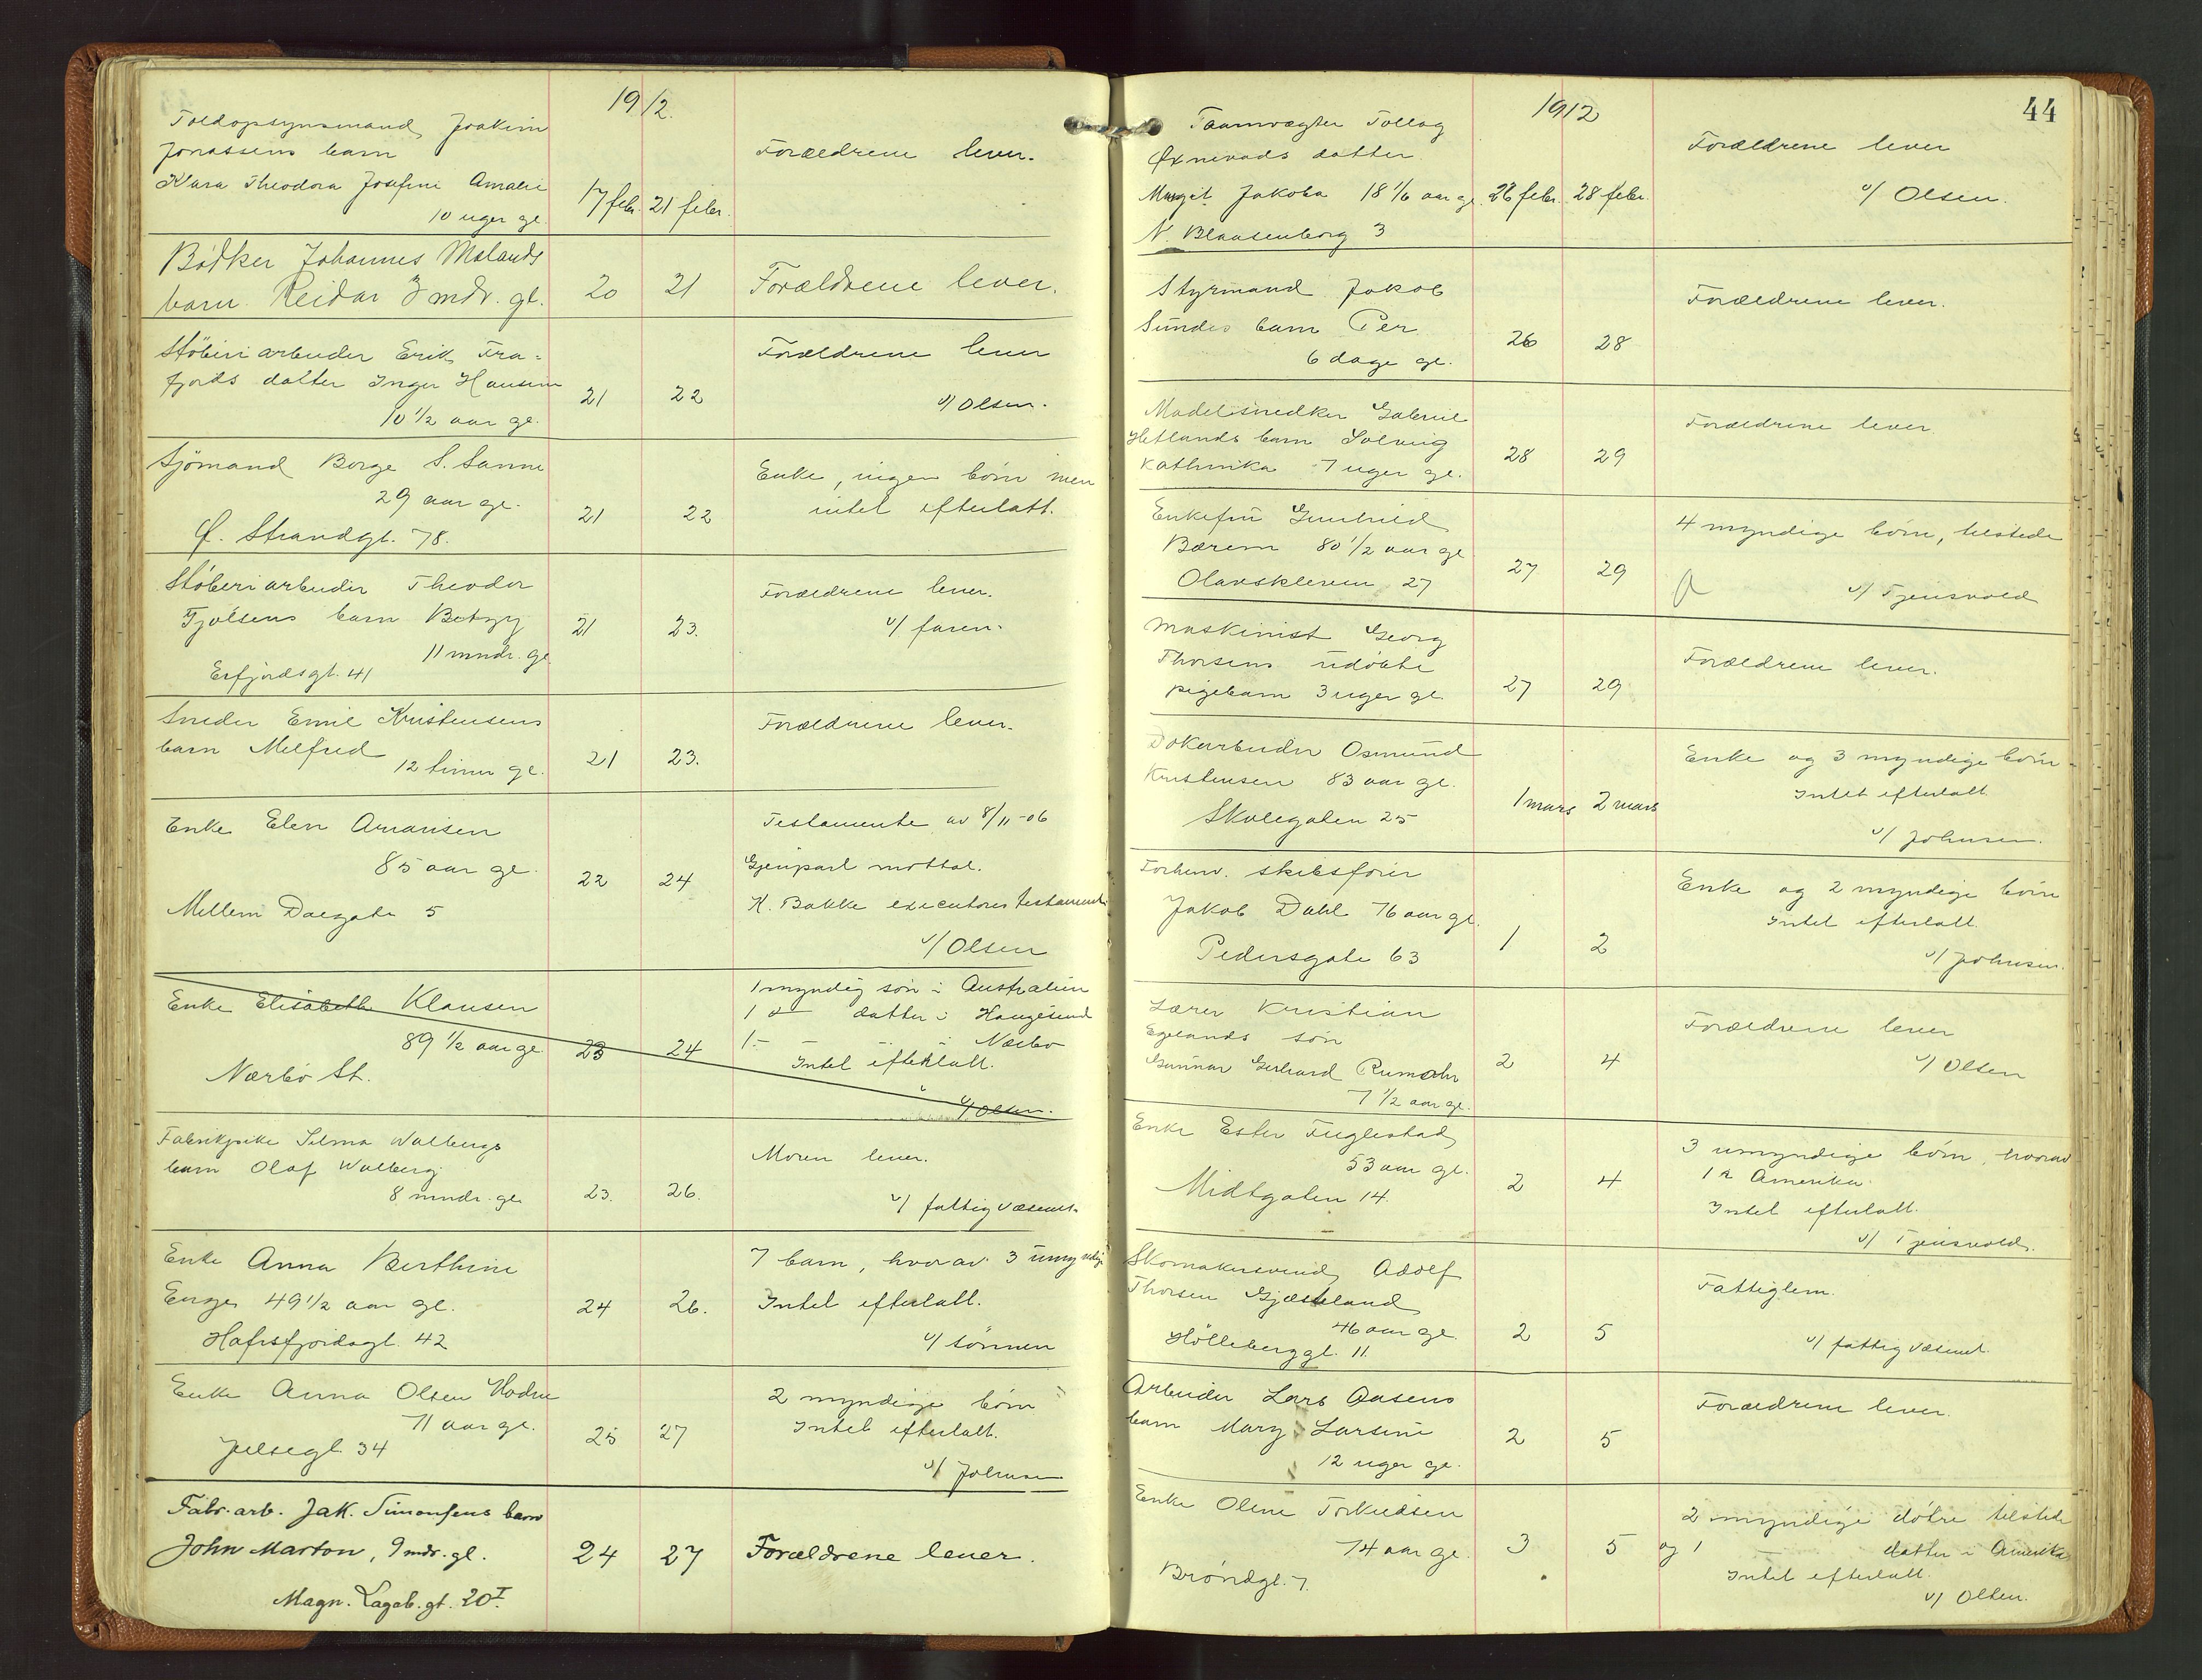 1912.
Toldopsynsmand Joakim
Jonassens barn
Klara Theodora Josefine Amalie
10 uger gl. 17 febr. 21 febr.
Forældrene lever.
Bødker Johannes Mølands
barn Reidar 3 mdr. gl. 20 21 Forældrene lever.
Støberiarbeider Erik Fra-
fjords datter Inger Hansine
10 1/2 aar gl. 21 22
Forældrene lever
v/ Olsen.
Sjömand Borge S. Sanne
29 aar gl.
Ø. Strandgt. 78. 21 22
Enke, ingen børn men
intet efterlatt.
Støberiarbeider Theodor
Fjølsens barn Betzy
11 mndr. gl.
Erfjordsgt. 41 21 23.
Forældrene lever.
v/ faren.
Snedker Emil Kristensens
barn Melfred
12 timer gl. 21 23.
Forældrene lever.
Enke Elen
85 aar gl.
Mellem Dalgate 5 22 24
Testamente av 8/11-06
Gjenpart mottat.
K. Bakke executores testamenti
v/ Olsen
Enke Elisabeth Klausen
89 1/2 aar gl.
Nærbø St. 23 24
1 myndig søn i Australien
1 do datter i Haugesund
1 - - - Nærbø
Intet efterlatt.
v/ Olsen.
Fabrikpike Selma Walbergs
barn Olaf Walberg
8 mndr. gl. 23. 26.
Moren lever.
v/ fattigvæsenet.
Enke Anna Berthine
Enge 49 1/2 aar gl.
Hafrsfjordsgt. 42 24 26.
7 barn, hvorav 3 umyndige
Intet efterlatt.
v/ sønnen
Enke Anna Olsen Hodne
71 aar gl.
Jelsegt. 34 25 27
2 myndige børn
Intet efterlatt.
v/ Johnsen
Fabr. arb. Jak. Simonsens barn
John Marton, 9 mdr. gl. 24 27 Forældrene lever.
Magn. Lagab. gt. 20 I.
1912
44
Taarnvægter Tollag
Øxnevads datter
Margit Jakoba 18 1/6 aar gl. 26 febr. 28 febr.
N. Blaasenborg 3
Forældrene lever
v/ Olsen.
Styrmand Jakob
Sundes barn Per
6 dage gl. 26 28
Forældrene lever.
Modelsnedker Gabriel
Hetlands barn Solveig
Kathinka 7 uger gl. 28 29
Forældrene lever
Enkefru Gunhild
Bærem 80 1/2 aar gl
Olavskleven 27 27 29
4 myndige børn, tilstede
v/ Tjensvold
Maskinist Georg
Thorsens udøbte
pigebarn 3 uger gl. 27 29
Forældrene lever.
Dokarbeider Osmund
Kristensen 83 aar gl.
Skolegaten 25 1 mars 2 mars
Enke og 3 myndige børn.
Intet efterlatt.
v/ Johnsen.
Forhenv. skibsfører
Jakob Dahl 76 aar gl.
Pedersgate 63 1 2
Enke og 2 myndige børn
Intet efterlatt.
v/ Johnsen.
Lærer Kristian
Egelands søn
Gunnar Gerhard Rumohr
7 1/2 aar gl. 2 4
Forældrene lever
v/ Olsen
Enke Ester Fuglestad
53 aar gl.
Midtgaten 14. 2 4
3 umyndige børn, hvorav
1 i Amerika.
Intet efterlatt.
v/ Tjensvold.
Skomakersvend Adolf
Thorsen Gjæsteland
46 aar gl.
Hölleberggt. 11. 2 5
Fattiglem.
v/ fattigvæsenet.
Arbeider Lars Aasens
barn Mary Larsine
12 uger gl. 2 5
Forældrene lever.
Enke Olene Torkildsen
74 aar gl.
Brøndgt. 7. 3 5
2 myndige døtre tilstede
og 1 - datter i Amerika
Intet efterlatt.
v/ Olsen.